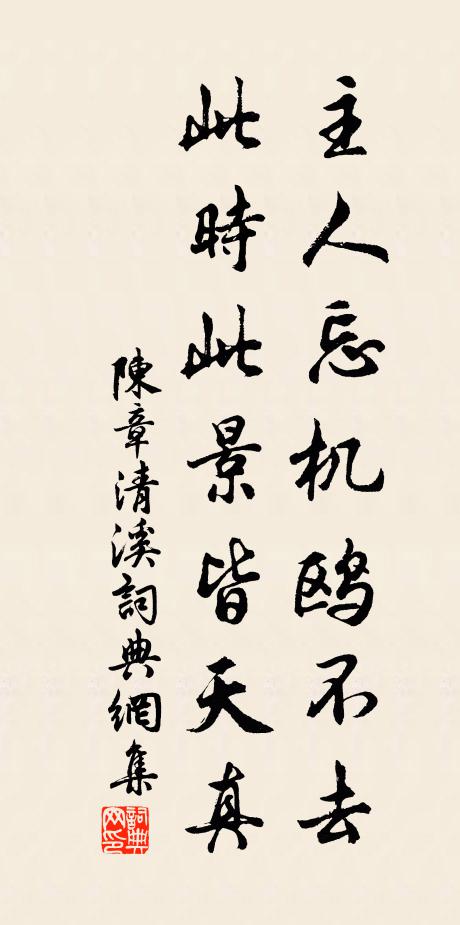 主人忘机鸥不去
此時此景皆天真
陳章清溪詞典網集
詞典网印